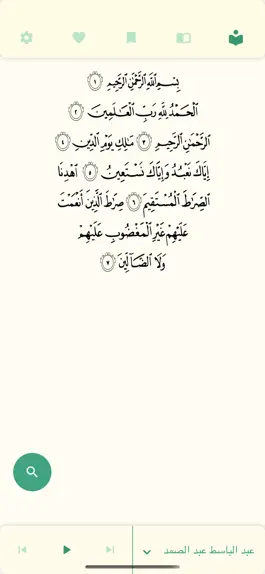 بِسْمِ ٱللَّهِ ٱلرَّحْمَٰنِ ٱلرَّحِيمِ ١
ٱلْحَمْدُ لِلَّهِ رَبِّ ٱلْعَٰلَمِينَ ٢
ٱلرَّحْمَٰنِ ٱلرَّحِيمِ ٣ مَٰلِكِ يَوْمِ ٱلدِّينِ ٤
إِيَّاكَ نَعْبُدُ وَإِيَّاكَ نَسْتَعِينُ ٥ ٱهْدِنَا
ٱلصِّرَٰطَ ٱلْمُسْتَقِيمَ ٦ صِرَٰطَ ٱلَّذِينَ أَنْعَمْتَ
عَلَيْهِمْ غَيْرِ ٱلْمَغْضُوبِ عَلَيْهِمْ
وَلَا ٱلضَّآلِّينَ ٧
عبد الباسط عبد الصمد